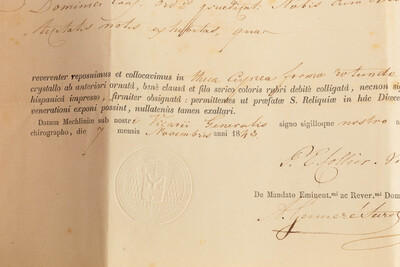 Dominici Conf. Ord. praedicat. Nobis
Majestatis notis exhibitas, quas
reverenter reposuimus et collocavimus in theca cuprea forma rotunda
crystallo ab anteriori ornatâ, benè clausâ et filo serico coloris rubri debitè colligatâ, necnon si
hispanicâ impresso, firmiter obsignatâ: permittentes ut praefatae S. Reliquiae in hâc Dioec
venerationi exponi possint, nullatenùs tamen exaltari.
Datum Mechliniae sub nostri Vicarii Generalis signo sigilloque nostro
chirographo, die 7 mensis Novembris anni 1843
De Mandato Eminent.mi ac Rever.mi Dom